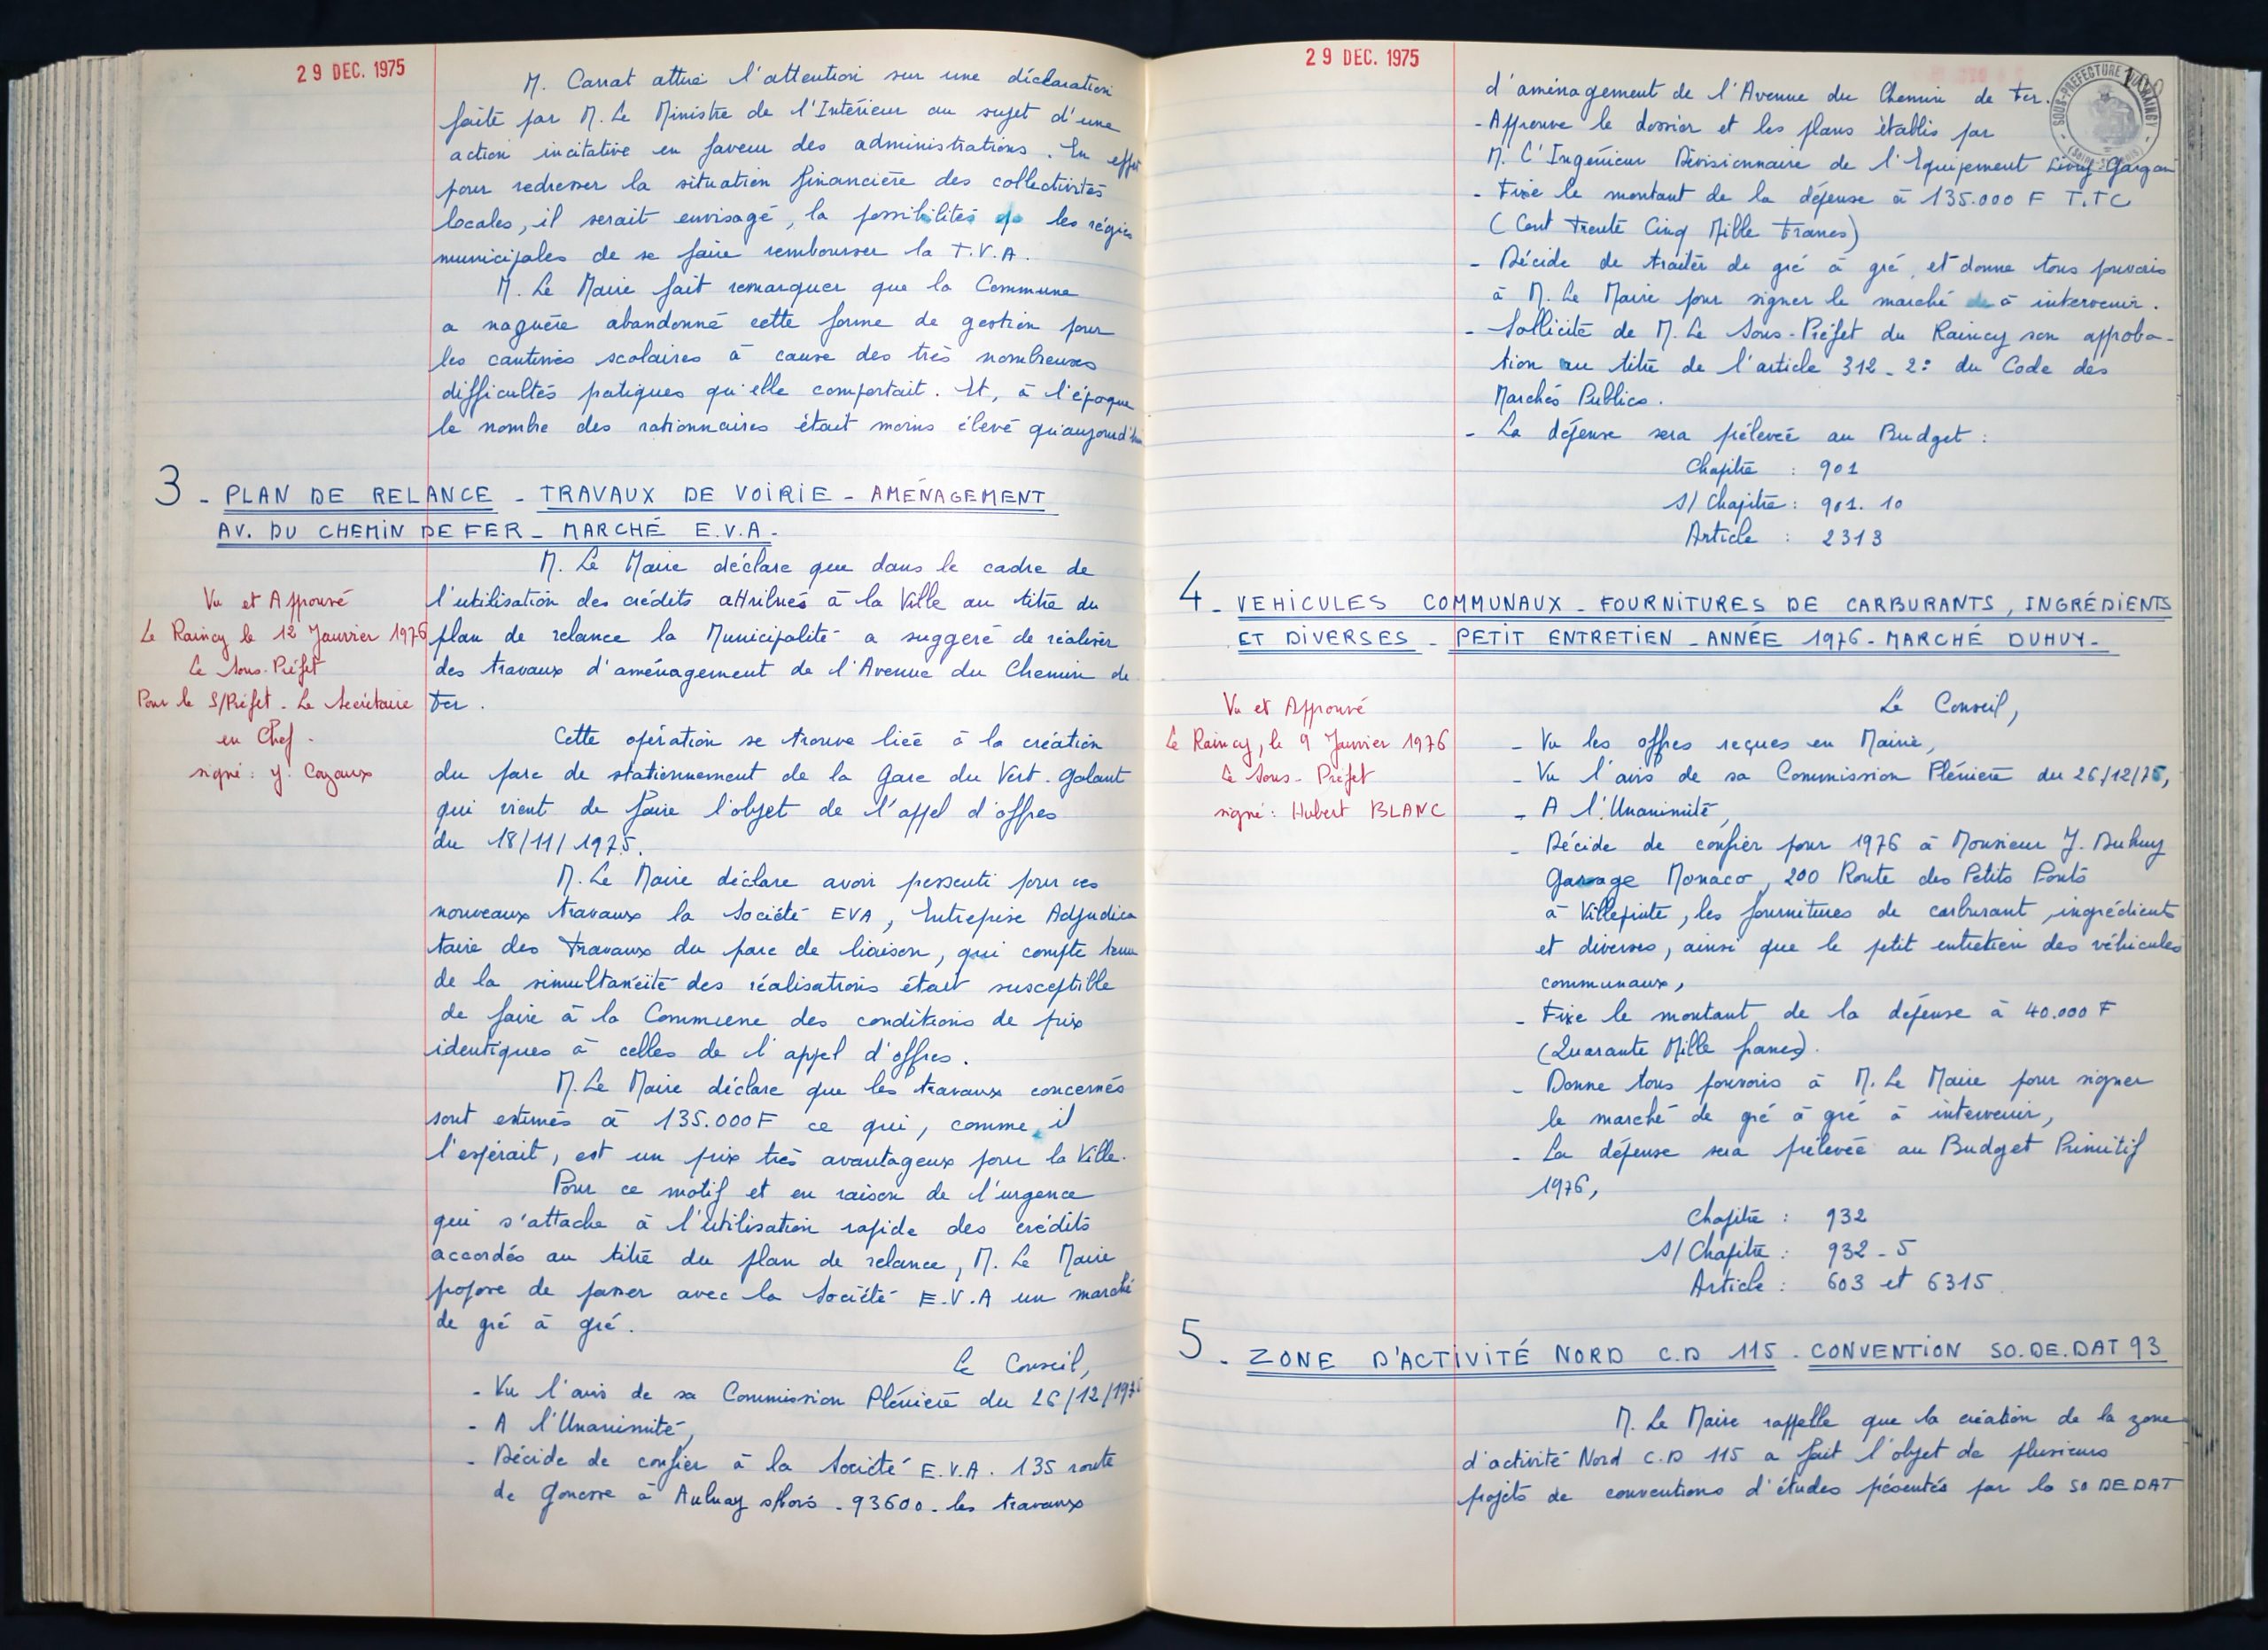 29 DEC. 1975
M. Carrat attire l'attention sur une déclaration
faite par M. Le Ministre de l'Intérieur au sujet d'une
action incitative en faveur des administrations. En effet
pour redresser la situation financière des collectivités
locales, il serait envisagé, la possibilités les régies
municipales de se faire rembourser la T.V.A.
M. Le Maire fait remarquer que la Commune
a naguère abandonné cette forme de gestion pour
les cantines scolaires à cause des très nombreuses
difficultés pratiques qu'elle comportait. Et, à l'époque
le nombre des rationnaires était moins élevé qu'aujourd'hui
3 - PLAN DE RELANCE - TRAVAUX DE VOIRIE - AMENAGEMENT
AV. DU CHEMIN DE FER - MARCHÉ E.V.A -
Vu et Approuvé
Le Raincy le 12 Janvier 1976
Le Sous-Préfet
Pour le S/Préfet - Le Secrétaire
en Chef -
signé : Y. Cazaux
M. Le Maire déclare que dans le cadre de
l'utilisation des crédits attribués à la Ville au titre du
plan de relance la Municipalité a suggéré de réaliser
des travaux d'aménagement de l'Avenue du Chemin de
Fer.
Cette opération se trouve liée à la création
du parc de stationnement de la Gare du Vert-Galant
qui vient de faire l'objet de l'appel d'offres
du 18/11/1975.
M. Le Maire déclare avoir pressenti pour ces
nouveaux travaux la Société EVA, Entreprise Adjudica
taire des Travaux du parc de liaison, qui compte tenu
de la simultanéité des réalisations était susceptible
de faire à la Commune des conditions de prix
identiques à celles de l'appel d'offres.
M. Le Maire déclare que les travaux concernés
sont estimés à 135.000F ce qui, comme il
l'espérait, est un prix très avantageux pour la Ville.
Pour ce motif et en raison de l'urgence
qui s'attache à l'utilisation rapide des crédits
accordés au titre du plan de relance, M. Le Maire
propose de passer avec la Société E.V.A un marché
de gré à gré.
Le Conseil,
- Vu l'avis de sa Commission Plénière du 26/12/1975
- A l'Unanimité,
- Décide de confier à la Société E.V.A. 135 route
de Gonesse à Aulnay s/bois - 93600 - les travaux
29 DEC. 1975
SOUS-PREFECTURE DU RAINCY
d'aménagement de l'Avenue du Chemin de Fer.
- Approuve le dossier et les plans établis par
M. L'Ingénieur Divisionnaire de l'Equipement Livry-Gargan
- Fixe le montant de la dépense à 135.000 F T.TC
(Cent Trente Cinq Mille Francs)
- Décide de traiter de gré à gré, et donne tous pouvoirs
à M. Le Maire pour signer le marché à intervenir.
- Sollicite de M. Le Sous-Préfet du Raincy son approba-
tion au titre de l'article 312 - 2° du Code des
Marchés Publics.
- La dépense sera prélevée au Budget :
Chapitre : 901
S/Chapitre : 901. 10
Article : 2313
4 - VEHICULES COMMUNAUX - FOURNITURES DE CARBURANTS, INGRÉDIENTS
ET DIVERSES - PETIT ENTRETIEN - ANNÉE 1976 - MARCHÉ DUHUY -
Vu et Approuvé
Le Raincy, le 9 Janvier 1976
Le Sous-Préfet
signé : Hubert BLANC
Le Conseil,
- Vu les offres reçues en Mairie,
- Vu l'avis de sa Commission Plénière du 26/12/75,
- A l'Unanimité,
- Décide de confier pour 1976 à Monsieur J. Duhuy
Garage Monaco, 200 Route des Petits Ponts
à Villepinte, les fournitures de carburant, ingrédients
et diverses, ainsi que le petit entretien des véhicules
communaux,
- Fixe le montant de la dépense à 40.000 F
(Quarante Mille francs).
- Donne tous pouvoirs à M. Le Maire pour signer
le marché de gré à gré à intervenir,
- La dépense sera prélevée au Budget Primitif
1976,
Chapitre : 932
S/Chapitre : 932 - 5
Article : 603 et 6315
5 - ZONE D'ACTIVITÉ NORD C.D 115 - CONVENTION SO.DE.DAT 93
M. Le Maire rappelle que la création de la zone
d'activité Nord C.D 115 a fait l'objet de plusieurs
projets de conventions d'études présentés par la SO DE DAT